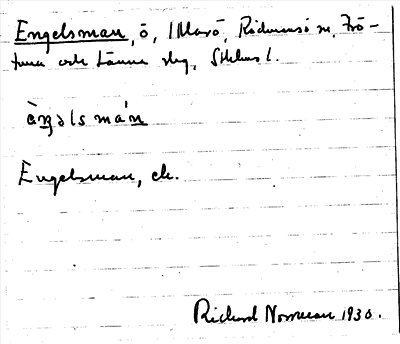 Engelsman, ö, I Marö, Rådmansö sn, Frö-
tuna och Länna skg, Sthlms l.
èŋəls má'n
Engelsman, ek.
Richard Norrman 1930.